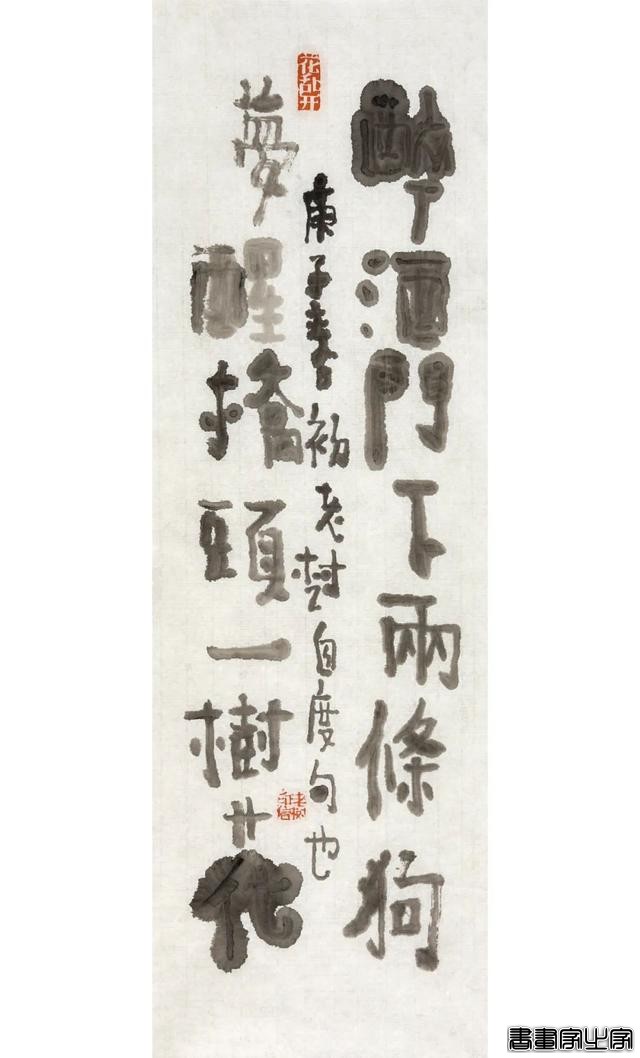 醉酒門下兩條狗
花乱开
庚子春初老树自度句也
夢醒橋頭一樹花
書畫家之家